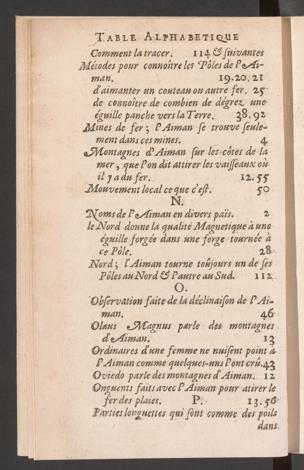 TABLE ALPHABETIQUE
Comment la tracer. 114 & suivantes
Métodes pour connoître les Pôles de l'Ai-
man. 19.20.21
d'aimanter un couteau ou autre fer. 25
de connoître de combien de dégrez une
éguille panche vers la Terre. 38.92
Mines de fer; l'Aiman se trouve seule-
ment dans ces mines. 4
Montagnes d'Aiman sur les côtes de la
mer, que l'on dit attirer les vaisseaux où
il y a du fer. 12.55
Mouvement local ce que c'est. 50
N.
Noms de l'Aiman en divers païs. 2
le Nord donne la qualité Magnetique à une
éguille forgée dans une forge tournée à
ce Pôle. 28
Nord; l'Aiman tourne toûjours un de ses
Pôles au Nord & l'autre au Sud. 112
O.
Observation faite de la déclinaison de l'Ai-
man. 46
Olaus Magnus parle des montagnes
d'Aiman. 13
Ordinaires d'une femme ne nuisent point à
l'Aiman comme quelques-uns l'ont crû. 43
Oviedo parle des montagnes d'Aiman. 12
Onguents faits avec l'Aiman pour atirer le
fer des plaies. P. 13.56
Parties longuettes qui sont comme des poils
dans